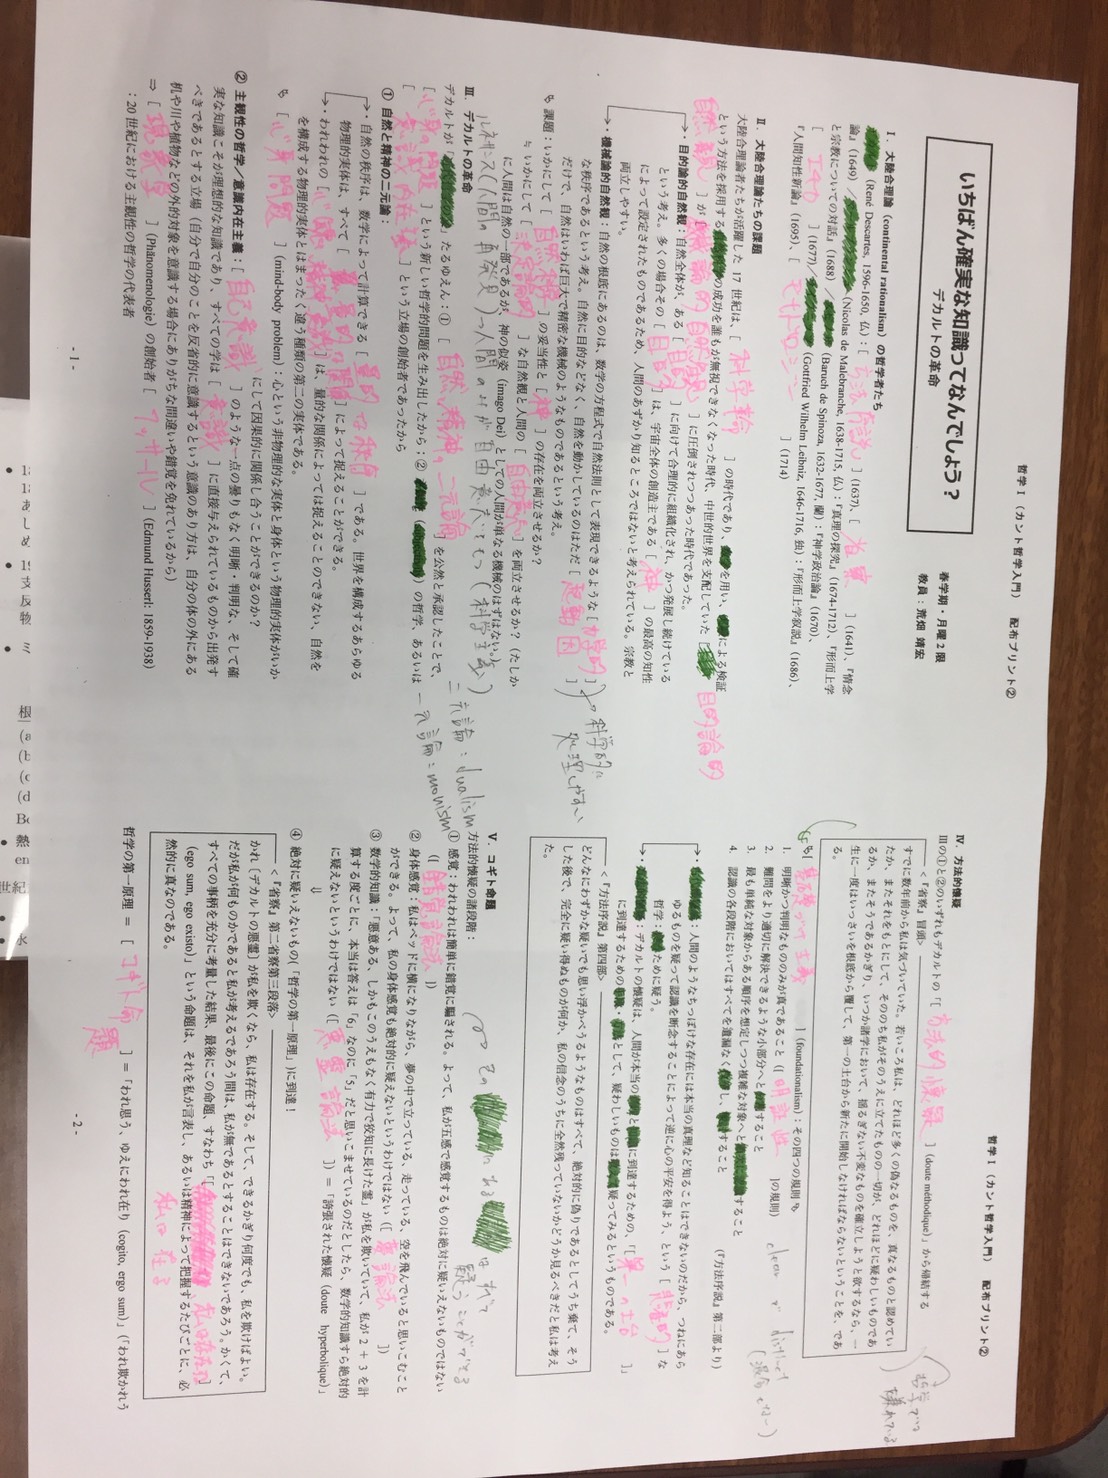 哲学Ⅰ（カント哲学入門） 配布プリント②
春学期・月曜2限
教員：荒畑 靖宏
いちばん確実な知識ってなんでしょう？
デカルトの革命
Ⅰ．大陸合理論（continental rationalism）の哲学者たち
(René Descartes, 1596-1650, 仏)：[ 方法序説 ] (1637)、[ 省察 ] (1641)、『情念
論』(1649)／ (Nicolas de Malebranche, 1638-1715, 仏)：『真理の探究』(1674-1712)、『形而上学
と宗教についての対話』(1688)／ (Baruch de Spinoza, 1632-1677, 蘭)：『神学政治論』(1670)、
[ エチカ ] (1677)／ (Gottfried Wilhelm Leibniz, 1646-1716, 独)：『形而上学叙説』(1686)、
『人間知性新論』(1695)、[ モナドロジー ] (1714)
Ⅱ．大陸合理論たちの課題
大陸合理論者たちが活躍した17世紀は、[ 科学革命 ] の時代であり、 を用い、 による検証
という方法を採用する の成功を誰もが無視できなくなった時代、中世的世界を支配していた [ 目的論的
自然観 ] が [ 機械論的自然観 ] に圧倒されつつあった時代であった。
・目的論的自然観：自然全体が、ある [ 目的 ] に向けて合理的に組織化され、かつ発展し続けている
という考え。多くの場合その [ 目的 ] は、宇宙全体の創造主である [ 神 ] の最高の知性
によって設定されたものであるため、人間のあずかり知るところではないと考えられている。宗教と
両立しやすい。
・機械論的自然観：自然の根底にあるのは、数学の方程式で自然法則として表現できるような [ 力学的 ]
な秩序であるという考え。自然に目的などなく、自然を動かしているのはただ [ 起動因 ]
だけで、自然はいわば巨大で精密な機械のようなものであるという考え。
科学的に
処理しやすい
課題：いかにして [ 自然科学 ] の妥当性と [ 神 ] の存在を両立させるか？
≒ いかにして [ 決定論的 ] な自然観と人間の [ 自由意志 ] を両立させるか？（たしか
に人間は自然の一部であるが、神の似姿 (imago Dei) としての人間が単なる機械のはずはない。）
ルネサンス（人間の再発見）→人間のみが自由意志をもつ（科学主義）
Ⅲ．デカルトの革命
デカルトが たるゆえん：① [ 自然と精神の二元論 ] を公然と承認したことで、
[ 心身問題 ] という新しい哲学的問題を生み出したから；② ( ) の哲学、あるいは
[ 意識内在主義 ] という立場の創始者であったから
二元論：dualism
一元論：monism
① 自然と精神の二元論：
・自然の秩序は、数学によって計算できる [ 量的な秩序 ] である。世界を構成するあらゆる
物理的実体は、すべて [ 量的な関係 ] によって捉えることができる。
・われわれの [ 心 ] は、量的な関係によっては捉えることのできない、自然を
を構成する物理的実体とはまったく違う種類の第二の実体である。
[ 心身問題 ] (mind-body problem)：心という非物理的な実体と身体という物理的実体がいか
にして因果的に関係し合うことができるのか？
② 主観性の哲学／意識内在主義：[ 自己意識 ] のような一点の曇りもなく明晰・判明な、そして確
実な知識こそが理想的な知識であり、すべての学は [ 意識 ] に直接与えられているものから出発す
べきであるとする立場（自分で自分のことを反省的に意識するという意識のあり方は、自分の体の外にある
机や川や植物などの外的対象を意識する場合にありがちな間違いや錯覚を免れているから）
⇒ [ 現象学 ] (Phänomenologie) の創始者 [ フッサール ] (Edmund Husserl: 1859-1938)
：20世紀における主観性の哲学の代表者
- 1 -
哲学Ⅰ（カント哲学入門） 配布プリント②
Ⅳ．方法的懐疑
Ⅲの①と②のいずれもデカルトの「[ 方法的懐疑 ] (doute méthodique)」から帰結する
＜『省察』冒頭＞
すでに数年前から私は気づいていた。若いころ私は、どれほど多くの偽なるものを、真なるものと認めてい
たか、またそれをもとにして、そののち私がそのうえに立てたものの一切が、どれほどに疑わしいものであ
るか、またそうであるかぎり、いつか諸学において、揺るぎない不変なものを確立しようと欲するなら、一
生に一度はいっさいを根底から覆して、第一の土台から新たに開始しなければならないということを、であ
る。
[ 基礎づけ主義 ] (foundationalism)：その四つの規則
1. 明晰かつ判明なもののみが真であること（[ 明証性 ] の規則）
clear distinct
2. 難問をより適切に解決できるような小部分へと すること
3. 最も単純な対象からある順序を想定しつつ複雑な対象へと すること
4. 認識の各段階においてはすべてを遺漏なく し、 すること
（『方法序説』第二部より）
：人間のようなちっぽけな存在には本当の真理など知ることはできないのだから、つねにあら
ゆるものを疑って認識を断念することによって逆に心の平安を得よう、という [ ] な
哲学： ために疑う。
：デカルトの懐疑は、人間が本当の と に到達するための、「[ 第一の土台 ]」
に到達するための ・ として、疑わしいものは 疑ってみるというものである。
＜『方法序説』第四部＞
どんなにわずかな疑いでも思い浮かべうるようなものはすべて、絶対的に偽りであるとしてうち棄て、そう
した後で、完全に疑い得ぬものが何か、私の信念のうちに全然残っていないかどうか見るべきだと私は考え
た。
Ⅴ．コギト命題
方法的懐疑の諸段階：
疑うことができる
① 感覚：われわれは簡単に錯覚に騙される。よって、私が五感で感覚するものは絶対に疑いえないものではない
（[ 錯覚論法 ]）
② 身体感覚：私はベッドに横になりながら、夢の中で立っている、走っている、空を飛んでいると思いこむこと
ができる。よって、私の身体感覚も絶対的に疑えないというわけではない（[ 夢論法 ]）
③ 数学的知識：「悪意ある、しかもこのうえもなく有力で狡知に長けた霊」が私を欺いていて、私が2＋3を計
算する度ごとに、本当は答えは「6」なのに「5」だと思いこませているのだとしたら、数学的知識すら絶対的
に疑えないというわけではない（[ 悪霊論法 ]）＝「誇張された懐疑 (doute hyperbolique)」
⇓
④ 絶対に疑いえないもの（「哲学の第一原理」）に到達！
＜『省察』第二省察第三段落＞
かれ［デカルトの悪霊］が私を欺くなら、私は存在する。そして、できるかぎり何度でも、私を欺けばよい。
だが私が何ものかであると私が考えるであろう間は、私が無であるとすることはできないであろう。かくて、
すべての事柄を充分に考量した結果、最後にこの命題、すなわち「[ 私は在る 私は存在する ]
(ego sum, ego existo)」という命題は、それを私が言表し、あるいは精神によって把握するたびごとに、必
然的に真なのである。
哲学の第一原理 ＝ [ コギト命題 ] ＝「われ思う、ゆえにわれ在り (cogito, ergo sum)」（「われ欺かれう
- 2 -